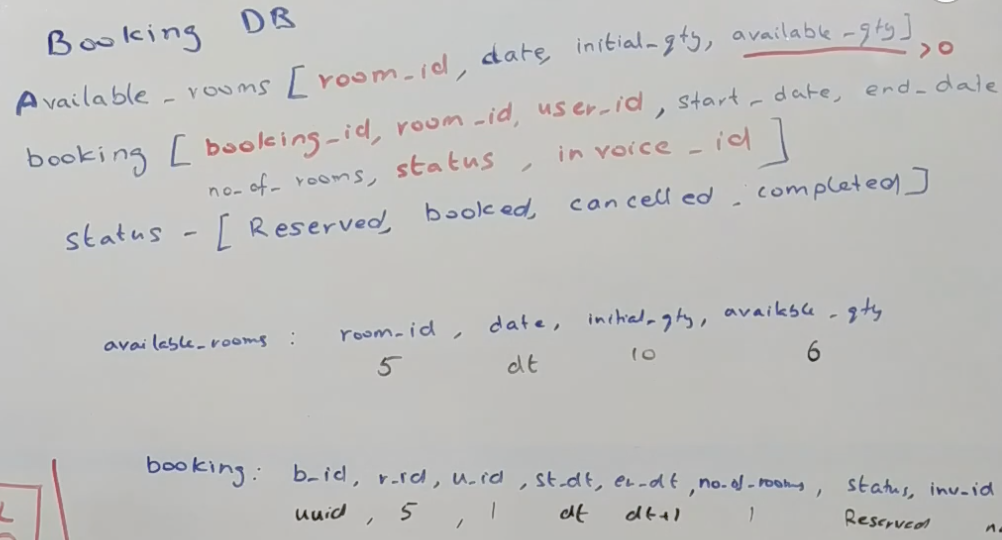 Booking DB
Available_rooms [room_id, date, initial_qty, available_qty] >0
booking [booking_id, room_id, user_id, start_date, end_date
no_of_rooms, status, invoice_id]
status - [Reserved, booked, cancelled, completed]
available_rooms : room_id, date, initial_qty, available_qty
5 dt 10 6
booking: b_id, r_id, u_id, st_dt, en_dt, no_of_rooms, status, inv_id
uuid, 5, 1 dt dt+1 1 Reserved